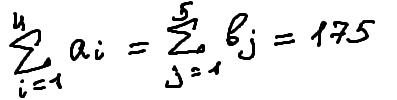 \sum_{i=1}^{4} a_i = \sum_{j=1}^{5} b_j = 175